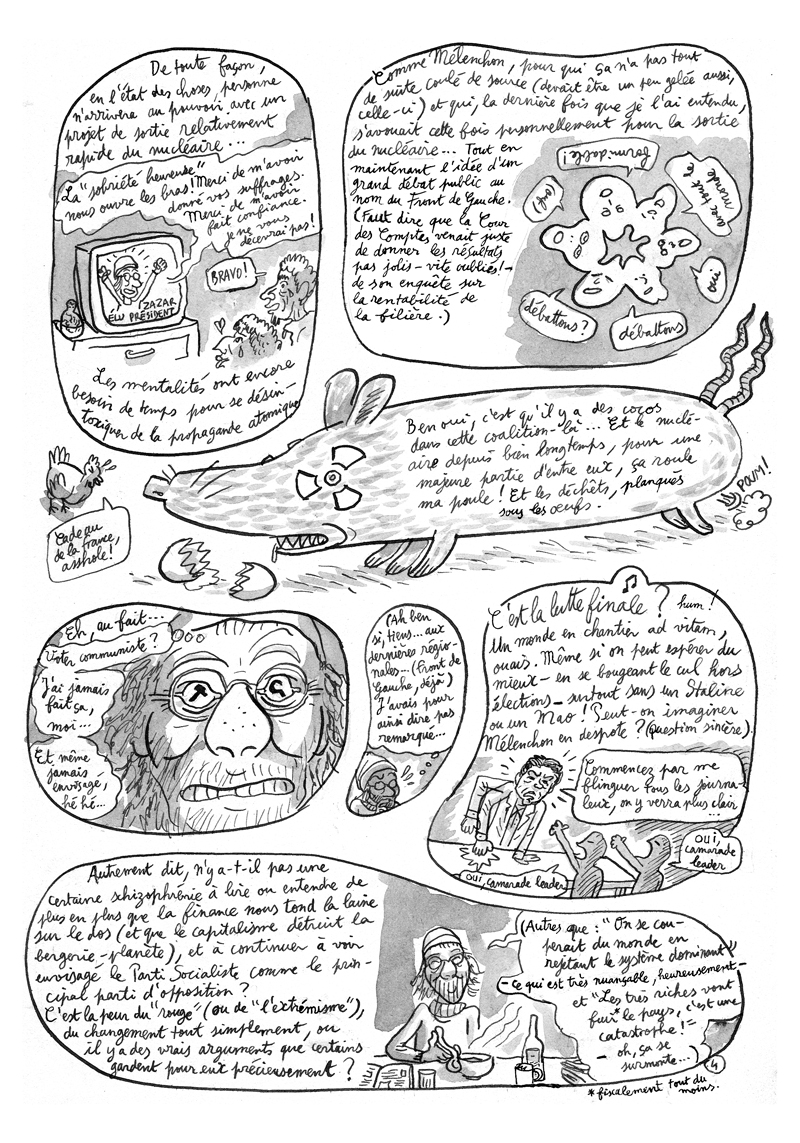 De toute façon,
en l'état des choses, personne
n'arrivera au pouvoir avec un
projet de sortie relativement
rapide du nucléaire...
La "sobriété heureuse"
nous ouvre les bras! Merci de m'avoir
donné vos suffrages.
Merci de m'avoir
fait confiance.
je ne vous
décevrai pas!
BRAVO!
ZAZAR
ELU PRÉSIDENT
Les mentalités ont encore
besoin de temps pour se désin-
toxiquer de la propagande atomique
Comme Mélenchon, pour qui ça n'a pas tout
de suite coulé de source (devait être un peu gelée aussi,
celle-ci) et qui, la dernière fois que je l'ai entendu,
s'avouait cette fois personnellement pour la sortie
du nucléaire... Tout en
maintenant l'idée d'un
grand débat public au
nom du Front de Gauche.
(Faut dire que la Cour
des Comptes venait juste
de donner les résultats
pas jolis - vite oubliés! -
de son enquête sur
la rentabilité de
la filière.)
formi-doable!
avec tout le
monde
(ouf)
oui
débattons?
débattons
Ben oui, c'est qu'il y a des cocos
dans cette coalition-là... Et le nuclé-
aire depuis bien longtemps, pour une
majeure partie d'entre eux, ça roule
ma poule! Et les déchets, planqués
sous les œufs.
POUM!
Cadeau
de la France,
asshole!
Eh, au fait...
Voter communiste?
J'ai jamais
fait ça,
moi...
Et même
jamais
envisagé,
hé hé...
(Ah ben
si, tiens... aux
dernières régio-
nales... (Front de
Gauche, déjà)
J'avais pour
ainsi dire pas
remarqué...
C'est la lutte finale? hum!
Un monde en chantier ad vitam,
ouais. Même si on peut espérer du
mieux - en se bougeant le cul hors
élections - surtout sans un Staline
ou un Mao! Peut-on imaginer
Mélenchon en despote? (Question sincère).
Commencez par me
flinguer tous les journa-
leux, on y verra plus clair
...
OUI,
camarade
leader
OUI, camarade leader
Autrement dit, n'y a-t-il pas une
certaine schizophrénie à lire ou entendre de
plus en plus que la finance nous tond la laine
sur le dos (et que le capitalisme détruit la
bergerie-planète), et à continuer à voir
envisagé le Parti Socialiste comme le prin-
cipal parti d'opposition?
C'est la peur du "rouge" (ou de "l'extrémisme"),
du changement tout simplement, ou
il y a des vrais arguments que certains
gardent pour eux précieusement?
(Autres que: "On se cou-
perait du monde en
rejetant le système dominant"
- Ce qui est très nuançable, heureusement -
et "Les très riches vont
fuir* le pays, c'est une
catastrophe!"
- oh, ça se
surmonte...)
4
*fiscalement tout du
moins.